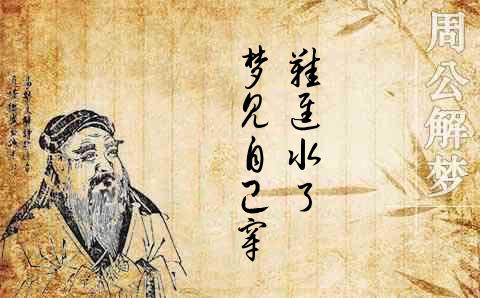 周公解梦
梦见自己穿
鞋進水了